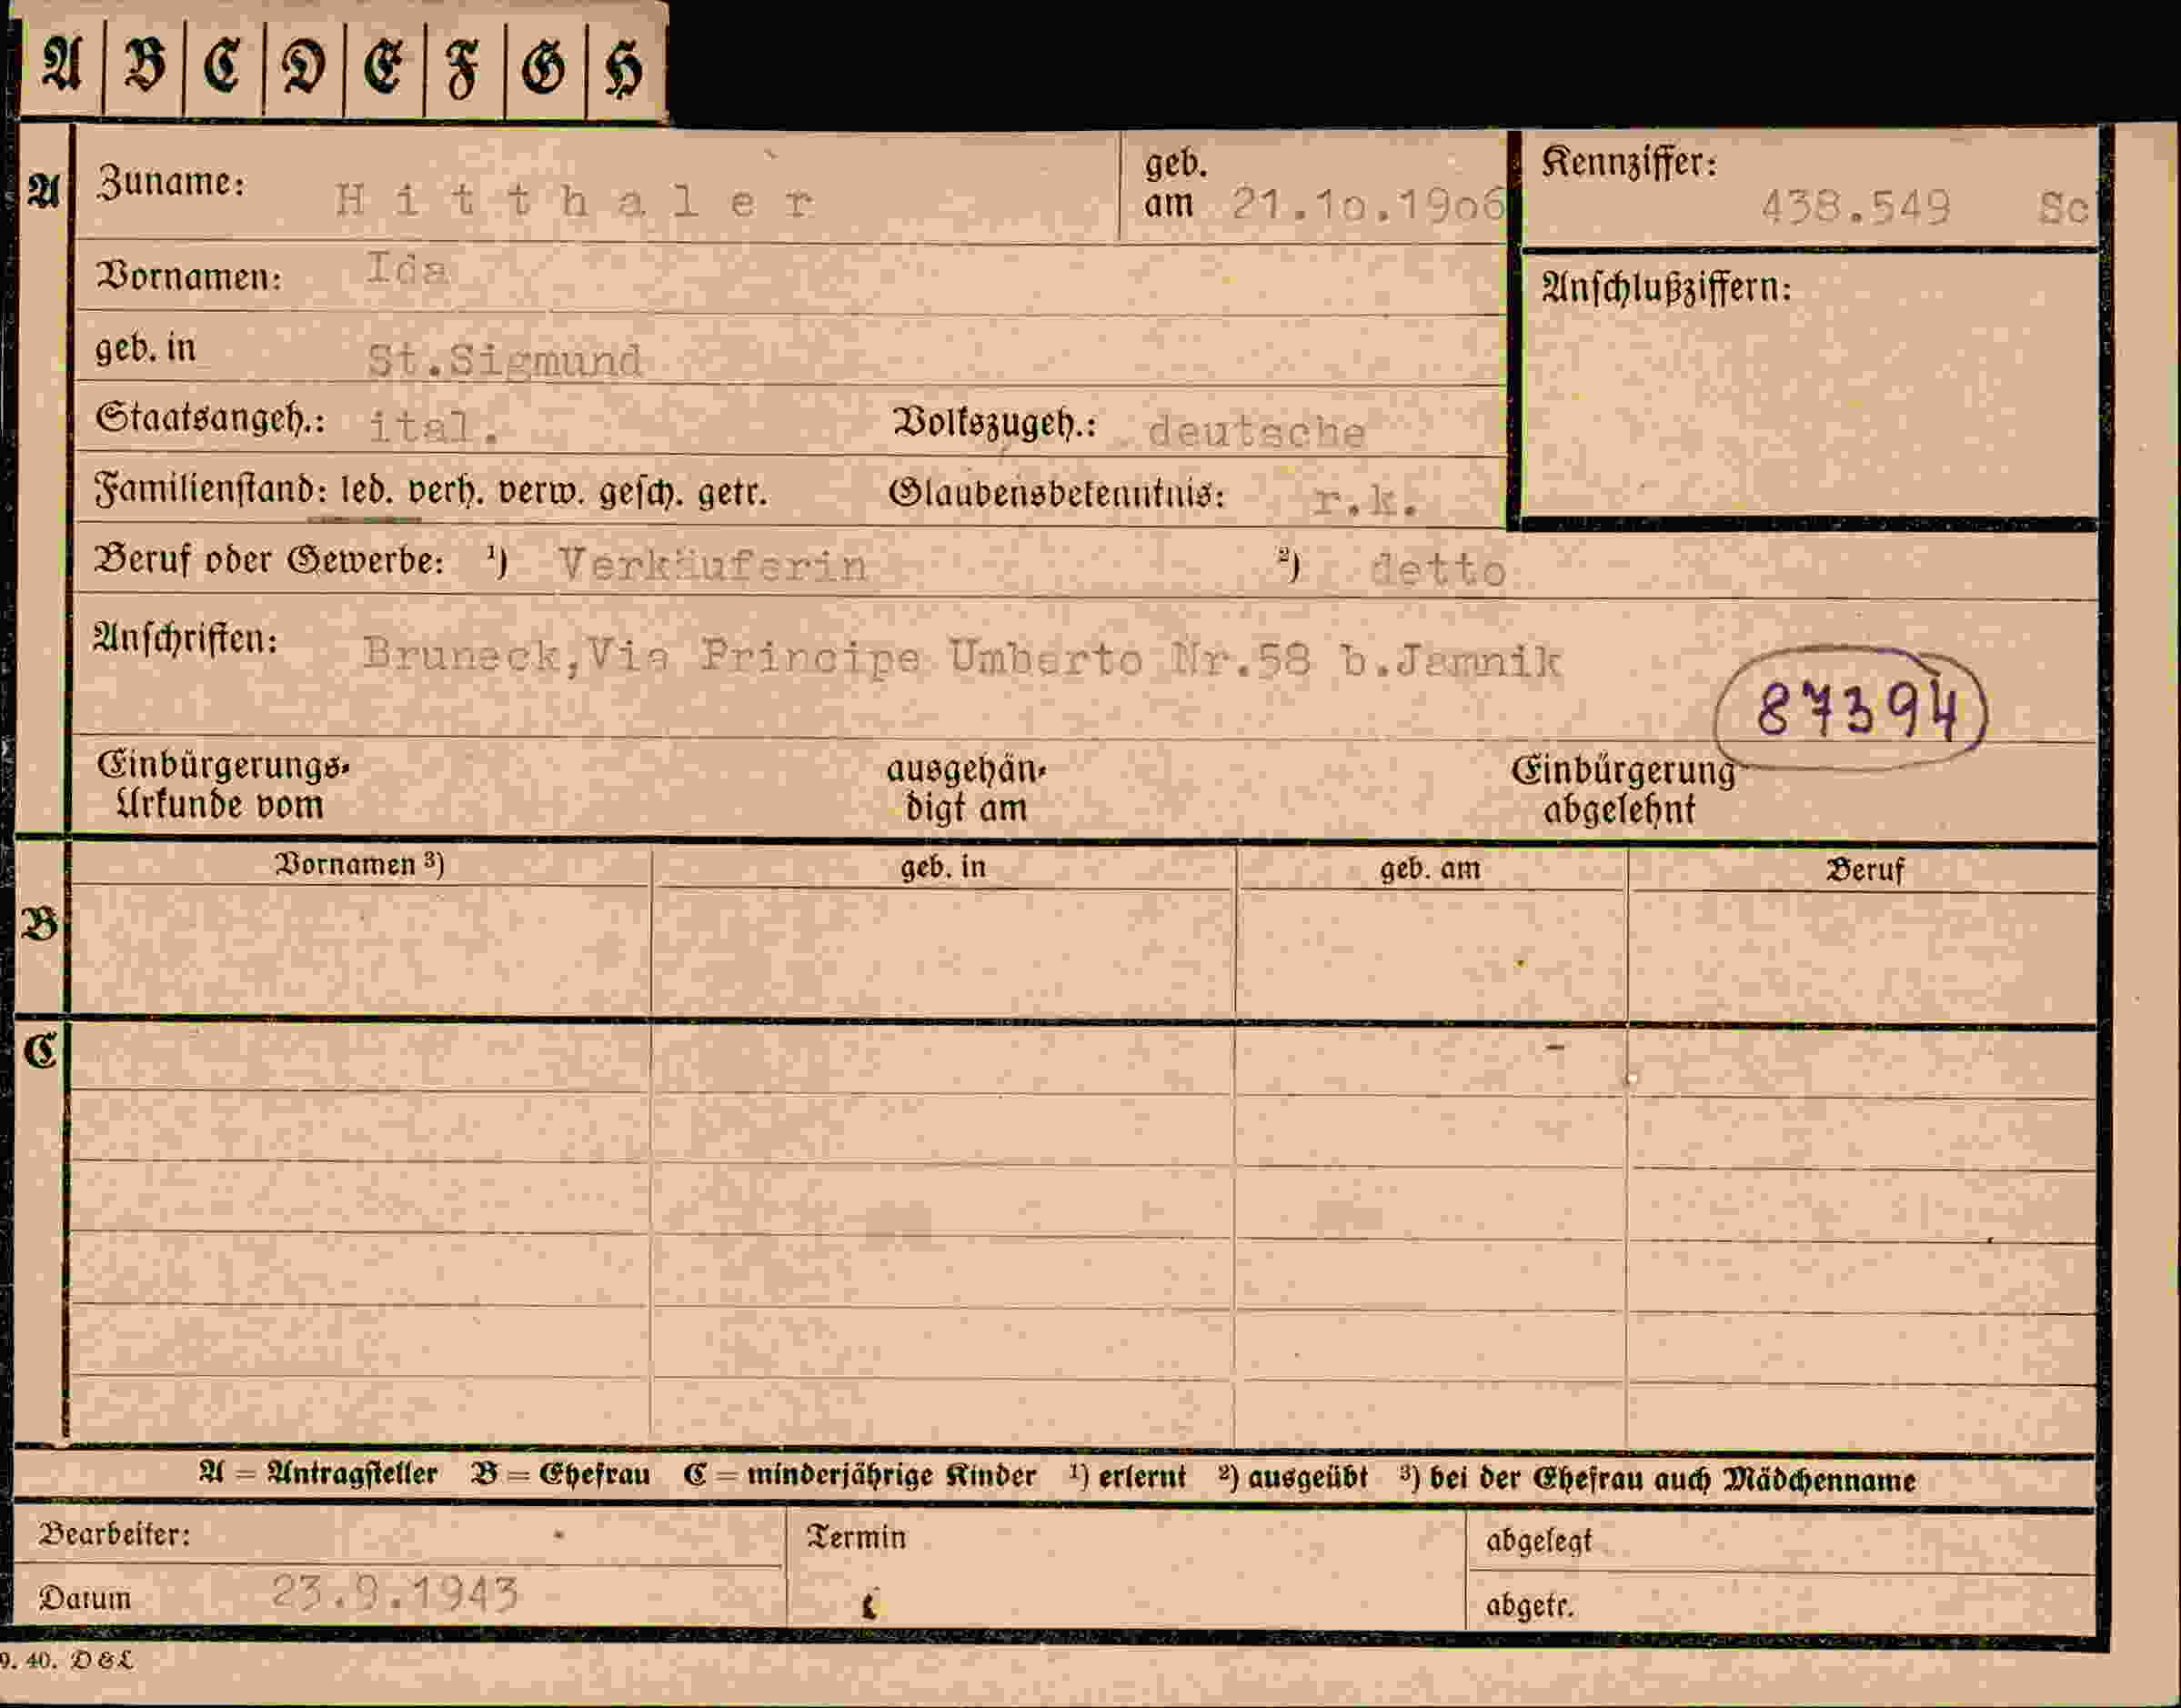 A B C D E F G H
A Zuname: Hitthaler geb. am 21.10.1906 Kennziffer: 438.549 Sc
Vornamen: Ida Anschlußziffern:
geb. in St.Sigmund
Staatsangeh.: ital. Volkszugeh.: deutsche
Familienstand: led. verh. verw. gesch. getr. Glaubensbekenntnis: r.k.
Beruf oder Gewerbe: ¹) Verkäuferin ²) detto
Anschriften: Bruneck,Via Principe Umberto Nr.58 b.Jamnik
87394
Einbürgerungs- ausgehän- Einbürgerung
Urkunde vom digt am abgelehnt
Vornamen ³) geb. in geb. am Beruf
B
C
A = Antragsteller B = Ehefrau C = minderjährige Kinder ¹) erlernt ²) ausgeübt ³) bei der Ehefrau auch Mädchenname
Bearbeiter: Termin abgelegt
Datum 23.9.1943 abgetr.
9. 40. D & L